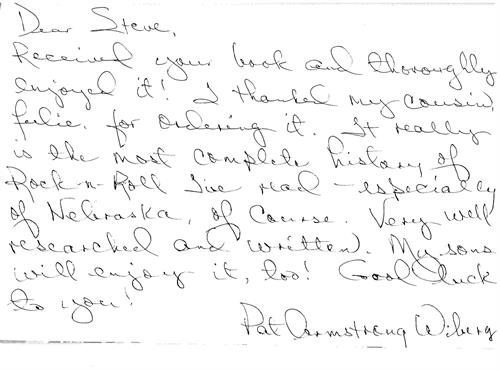 Dear Steve,
Received your book and thoroughly
enjoyed it! I thanked my cousin,
Julie, for ordering it. It really
is the most complete history of
Rock-n-Roll I've read - especially
of Nebraska, of course. Very well
researched and written. My sons
will enjoy it, too! Good luck
to you!
Pat Armstrong Wiberg